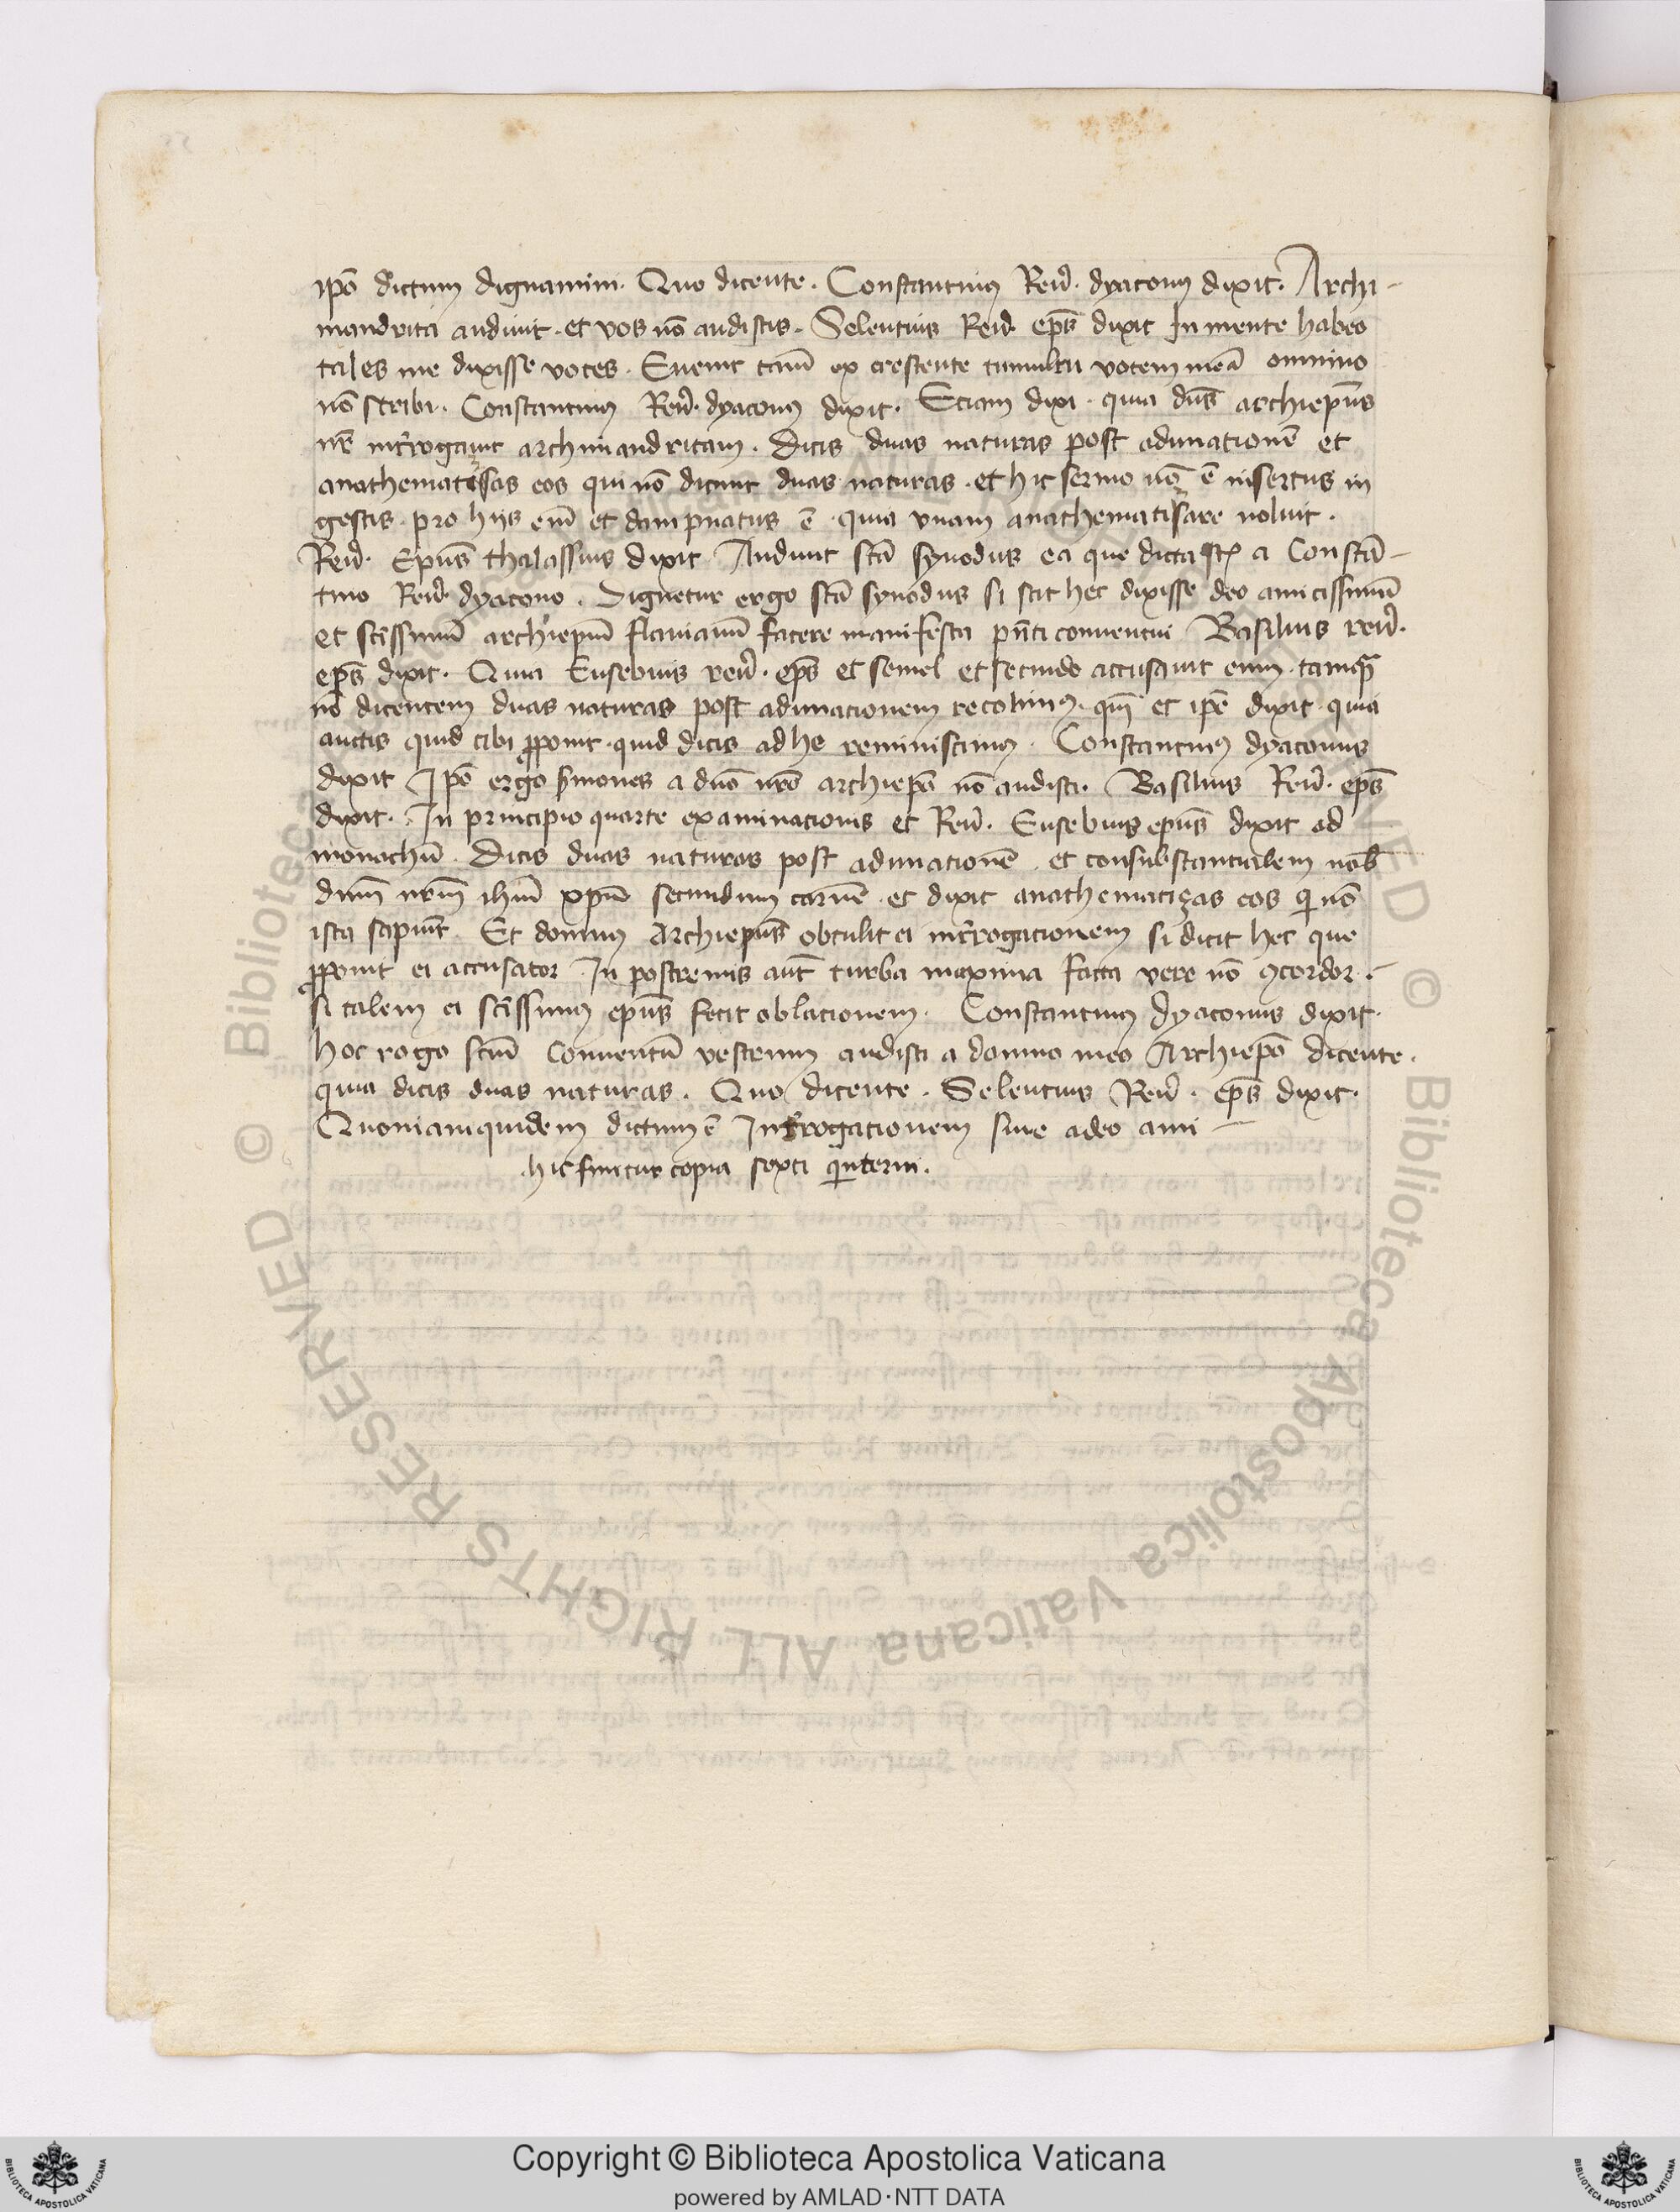 ipō dictum dignamini. Quo dicente. Constantinus Reuͥ. dyaconus dixit. Archi-
mandrita audiuit. et vos nō audistis. Seleucius Reuͥ. ep̄s dixit In mente habeo
tales me dixisse voces. Euenit tam̄ ex crescente tumultu vocem meā omnino
nō scribi. Constantinus Reuͥ. dyaconus dixit. Etiam dixi. quia dn̄s archiep̄us
nr̄ int̄rogauit archimandritam. Dicis duas naturas post adunationē et
anathematisas eos qui nō dicunt duas naturas. et hic sermo nō ē insertus in
gestis. pro hijs eni᷒ et dampnatus ē. quia vnam anathematisare noluit.
Reuͥ. Epūs thalassius dixit Audiuit scā synodus ea que dicta sūt a Constā-
tino Reuͥ. dyacono. Dignetur ergo scā synodus si scit hec dixisse deo amicissimū
et scīssimū archiepm̄ flauianū facere manifesta pn̄ti conuentui Basilius reuͥ.
ep̄s dixit. Quia Eusebius reuͥ. ep̄s et semel et secundo accusauit eum. tamqꝫ
nō dicentem duas naturas post adunacionem recolimus. qm̄ et ip̄e dixit. quia
auctis quid tibi ꝓponit. quid dicis ad he reminiscimus. Constantinus dyaconus
dixit Ipō ergo s̄mones a dn̄o nr̄o archiepō nō audisti. Basilius Reuͥ. ep̄s
dixit. In principio quarte examinacionis et Reuͥ. Eusebius epūs dixit ad
monachū. Dicis duas naturas post adunationē et consubstantialem nob̄
dnm̄ nrm̄ ihm̄ xp̄m secundum carnē. et dixit anathematiças eos qi nō
ista sapiūt. Et dominus Archiepūs obtulit ei int̄rogationem si dicit hec que
ꝓponit ei accusator. In postremis aut̄ turba maxima facta vere nō ꝯcordor.-
si talem ei scīssimus epūs fecit oblationem. Constantinus dyaconus dixit.
hoc rogo scm̄ Conuentū vestrum audisti a domno meo Archiepō dicente.
quia dicis duas naturas. Quo dicente. Seleucius Reuͥ. ep̄s dixit.
Quoniamquidem dictum ē Int̄rogationem siue adeo ami-
.hic finitur copia sexti qinterni.
Copyright © Biblioteca Apostolica Vaticana
powered by AMLAD·NTT DATA